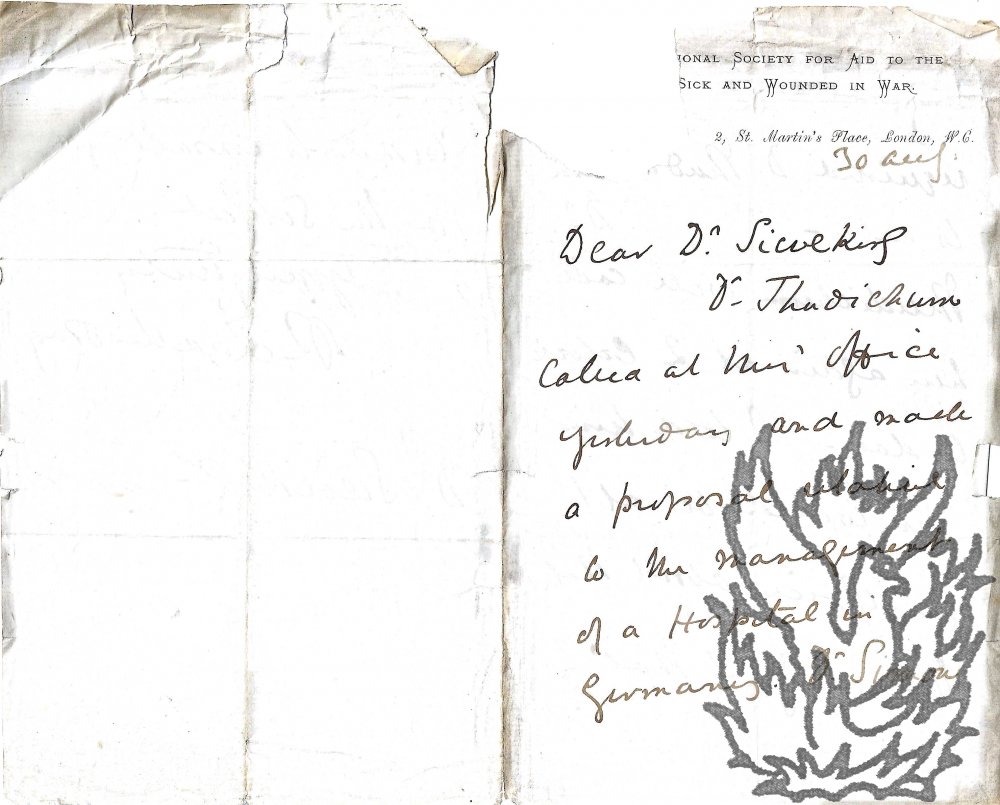 ional Society for Aid to the
Sick and Wounded in War.
2, St. Martin's Place, London, W.C.
30 Aug.
Dear Dr Sieveking
Dr Thudichum
Called at this office
yesterday and made
a proposal relative
to the management
of a Hospital in
Germany. Dr Simon